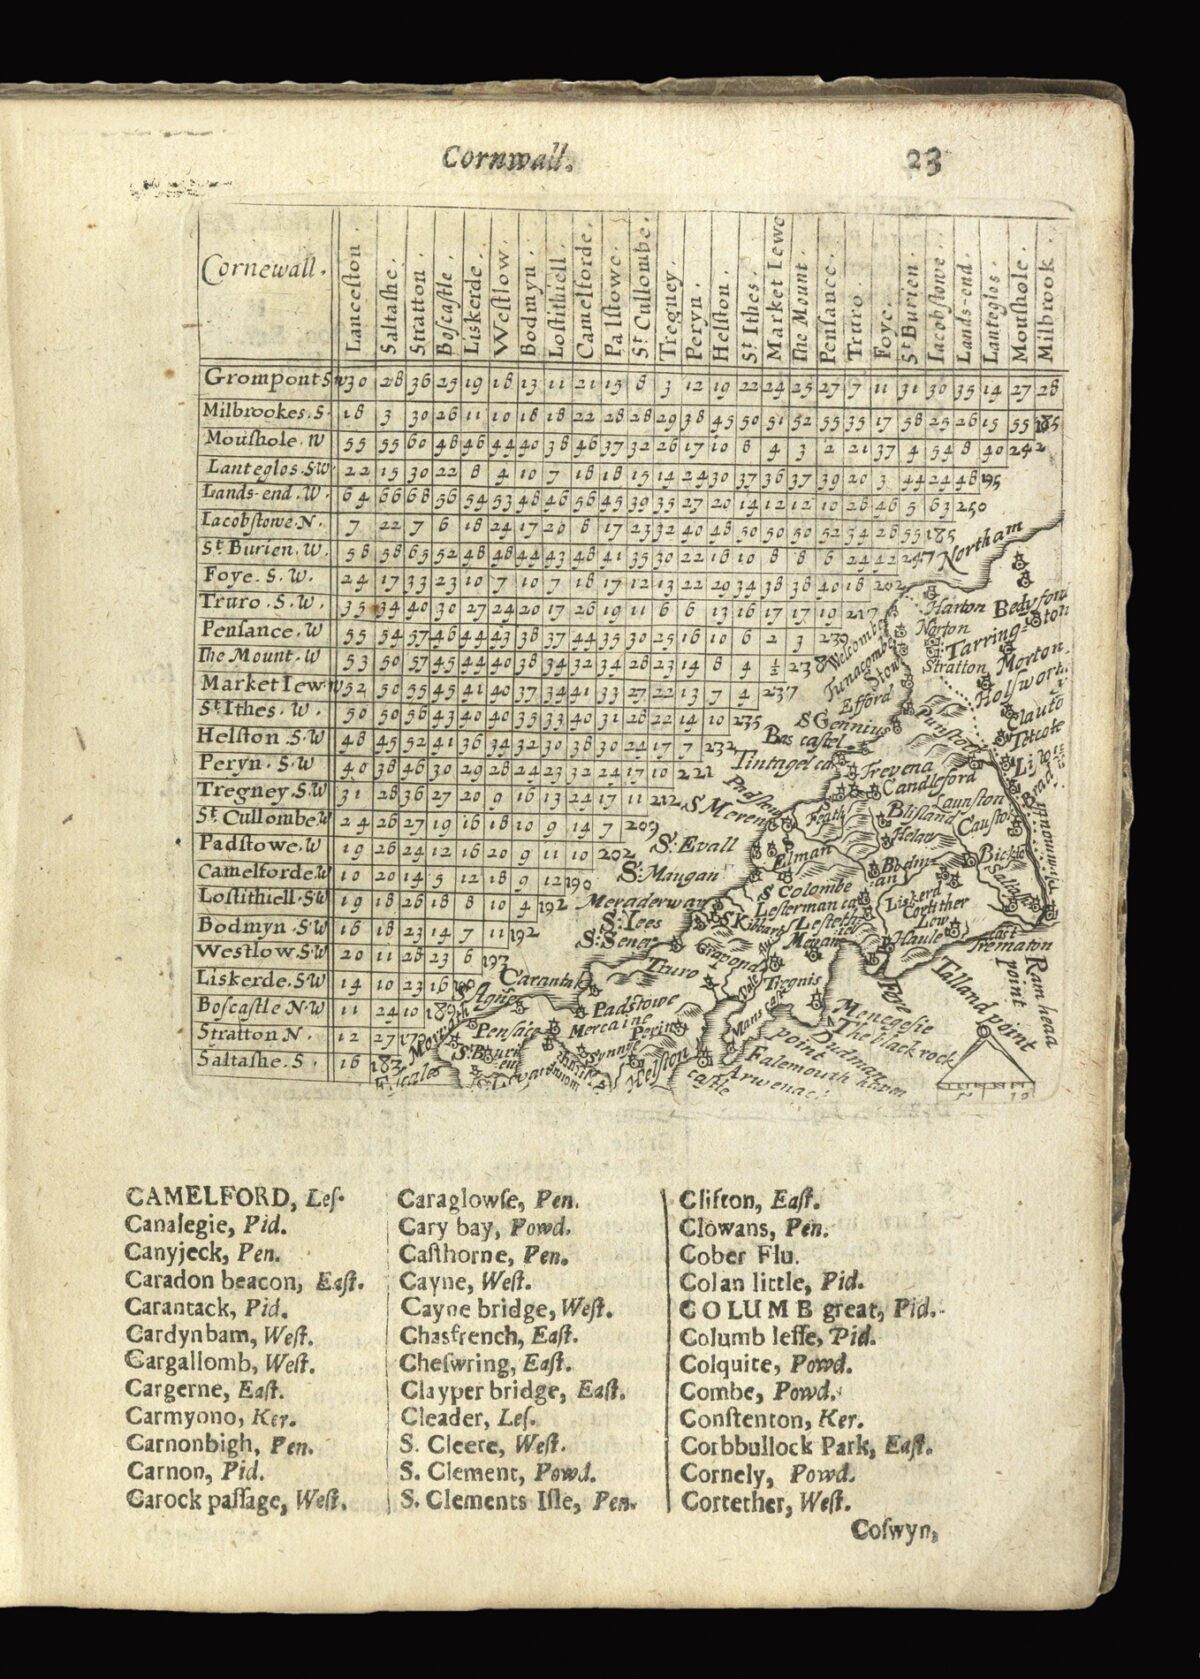 Cornwall.
23
Cornewall.
Lanceston.
Saltashe.
Stratton.
Boſcaſtle.
Liskerde.
Weſtlow.
Bodmyn.
Loſtithiell.
Camelforde.
Padſtowe.
St. Cullombe.
Tregney.
Peryn.
Helſton.
St. Ithes.
Market Iewe
The Mount.
Penſance.
Truro.
Foye.
St. Burien.
Iacobſtowe.
Lands-end.
Lanteglos.
Mouſhole.
Milbrook.
Grompont S W 30 28 36 25 19 18 13 11 21 15 8 3 12 19 22 24 25 27 7 11 31 30 35 14 27 28
Milbrookes. S. 18 3 30 26 11 10 18 18 22 28 28 29 38 45 50 51 52 55 35 17 58 25 26 15 55 185
Mouſhole. W 55 55 60 48 46 44 40 38 46 37 32 26 17 10 8 4 3 2 21 37 4 54 8 40 242
Lanteglos. S W. 22 15 30 22 8 4 10 7 18 18 15 14 24 30 37 36 37 39 20 3 44 24 48 195
Lands-end. W. 64 66 68 56 54 53 48 46 56 45 39 35 27 20 14 12 12 10 28 46 5 63 250
Iacobſtowe. N. 7 22 7 6 18 24 17 20 8 17 23 32 40 48 50 50 50 52 34 28 55 185
St. Burien. W. 58 58 65 52 48 48 44 43 48 41 35 30 22 18 10 8 8 6 24 42 247
Foye. S. W. 24 17 33 23 10 7 10 7 18 17 12 13 22 29 34 38 38 40 18 202
Truro. S. W. 35 34 40 30 27 24 20 17 26 19 11 6 6 13 16 17 17 19 217
Penſance. W 55 54 57 46 44 43 38 37 44 35 30 25 16 10 6 2 3 239
The Mount. W 53 50 57 45 44 40 38 34 32 34 28 23 14 8 4 ½ 238
Market Iew. W 52 50 55 45 41 40 37 34 41 33 27 22 13 7 4 237
St. Ithes. W. 50 50 56 43 40 40 35 33 40 31 28 22 14 10 235
Helſton. S. W 48 45 52 41 36 34 32 30 38 30 24 17 7 232
Peryn. S. W 40 38 46 30 29 28 24 23 32 24 17 10 221
Tregney. S. W 31 28 36 27 20 9 16 13 24 17 11 212
St. Cullombe. W 24 26 27 19 16 18 10 9 14 7 209
Padſtowe. W 19 26 24 12 16 20 9 11 10 202
Camelforde. W 10 20 14 5 12 18 9 12 190
Loſtithiell. S W 19 18 26 18 8 10 4 192
Bodmyn. S W 16 18 23 14 7 11 192
Westlow. S W 20 11 28 23 6 193
Liskerde. S W 14 10 23 16
Boſcaſtle N. W 11 24 10 189
Stratton N. 12 27 179
Saltaſhe. S. 16 183
Northam
Harton
Bedyford
Norton
Tarringe-ton
Welcombe
Tunacombe
Stow
Stratton
Morton
Holſworth
Efford
S Gennius
Clauto
Tetcote
Bos caſtel
Tintagel ca
Trevena
Candleford
Padſtow
S Meren
Bliſland
Launston
S: Evall
Helan
Bickle
Elman
Bodmi
an
S: Maugan
S Colombe
Liskerd
Lesterman ca
Cortither
Low
Meraderwan
S: Iees
S: Sener
Haule
Trematon
Truro
Grapond
Tregnis
Foye
Talland point
Ram head
point
Carantak
S. Agnes
Padstowe
Mercaine
Perin
Penſace
S. Buri
en
Helſton
Menegeſie
The black rock
Dudman
point
Falemouth haven
Arwenac
caſtle
5
10
CAMELFORD, Leſ.
Canalegie, Pid.
Canyjeck, Pen.
Caradon beacon, Eaſt.
Carantack, Pid.
Cardynbam, Weſt.
Cargallomb, Weſt.
Cargerne, Eaſt.
Carmyono, Ker.
Carnonbigh, Pen.
Carnon, Pid.
Carock paſſage, Weſt.
Caraglowſe, Pen.
Cary bay, Powd.
Caſthorne, Pen.
Cayne, Weſt.
Cayne bridge, Weſt.
Chasfrench, Eaſt.
Cheſwring, Eaſt.
Clayper bridge, Eaſt.
Cleader, Leſ.
S. Cleere, Weſt.
S. Clement, Powd.
S. Clements Iſle, Pen.
Clifton, Eaſt.
Clowans, Pen.
Cober Flu.
Colan little, Pid.
COLUMB great, Pid.
Columb leſſe, Pid.
Colquite, Powd.
Combe, Powd.
Conſtenton, Ker.
Corbbullock Park, Eaſt.
Cornely, Powd.
Cortether, Weſt.
Coſwyn,